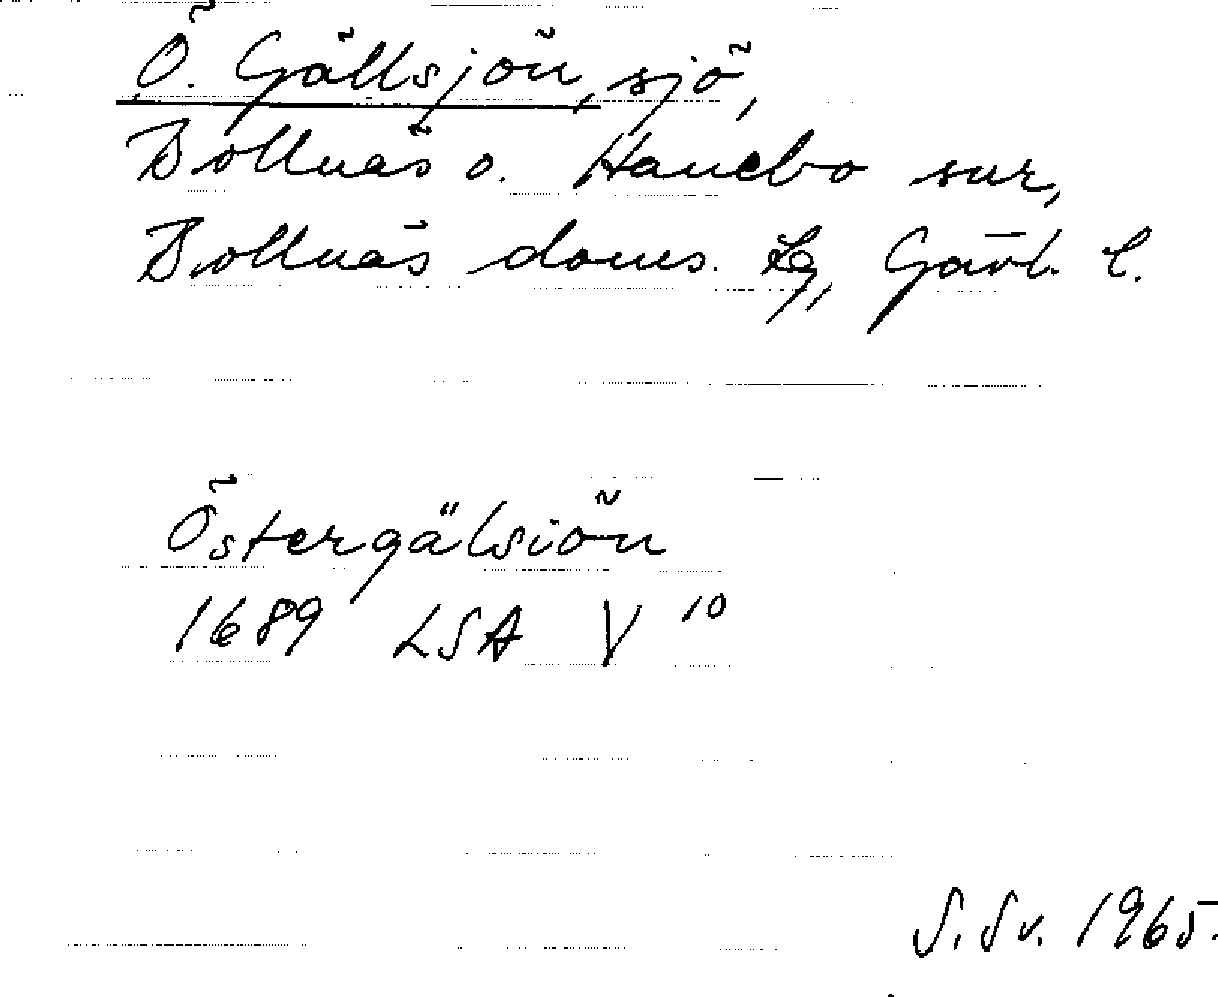 Ö. Gällsjön, sjö,
Bollnäs o. Hanebo snr,
Bollnäs doms. Lg, Gävl. l.
Östergälsiön
1689 LSA V 10
S. Sv. 1965.